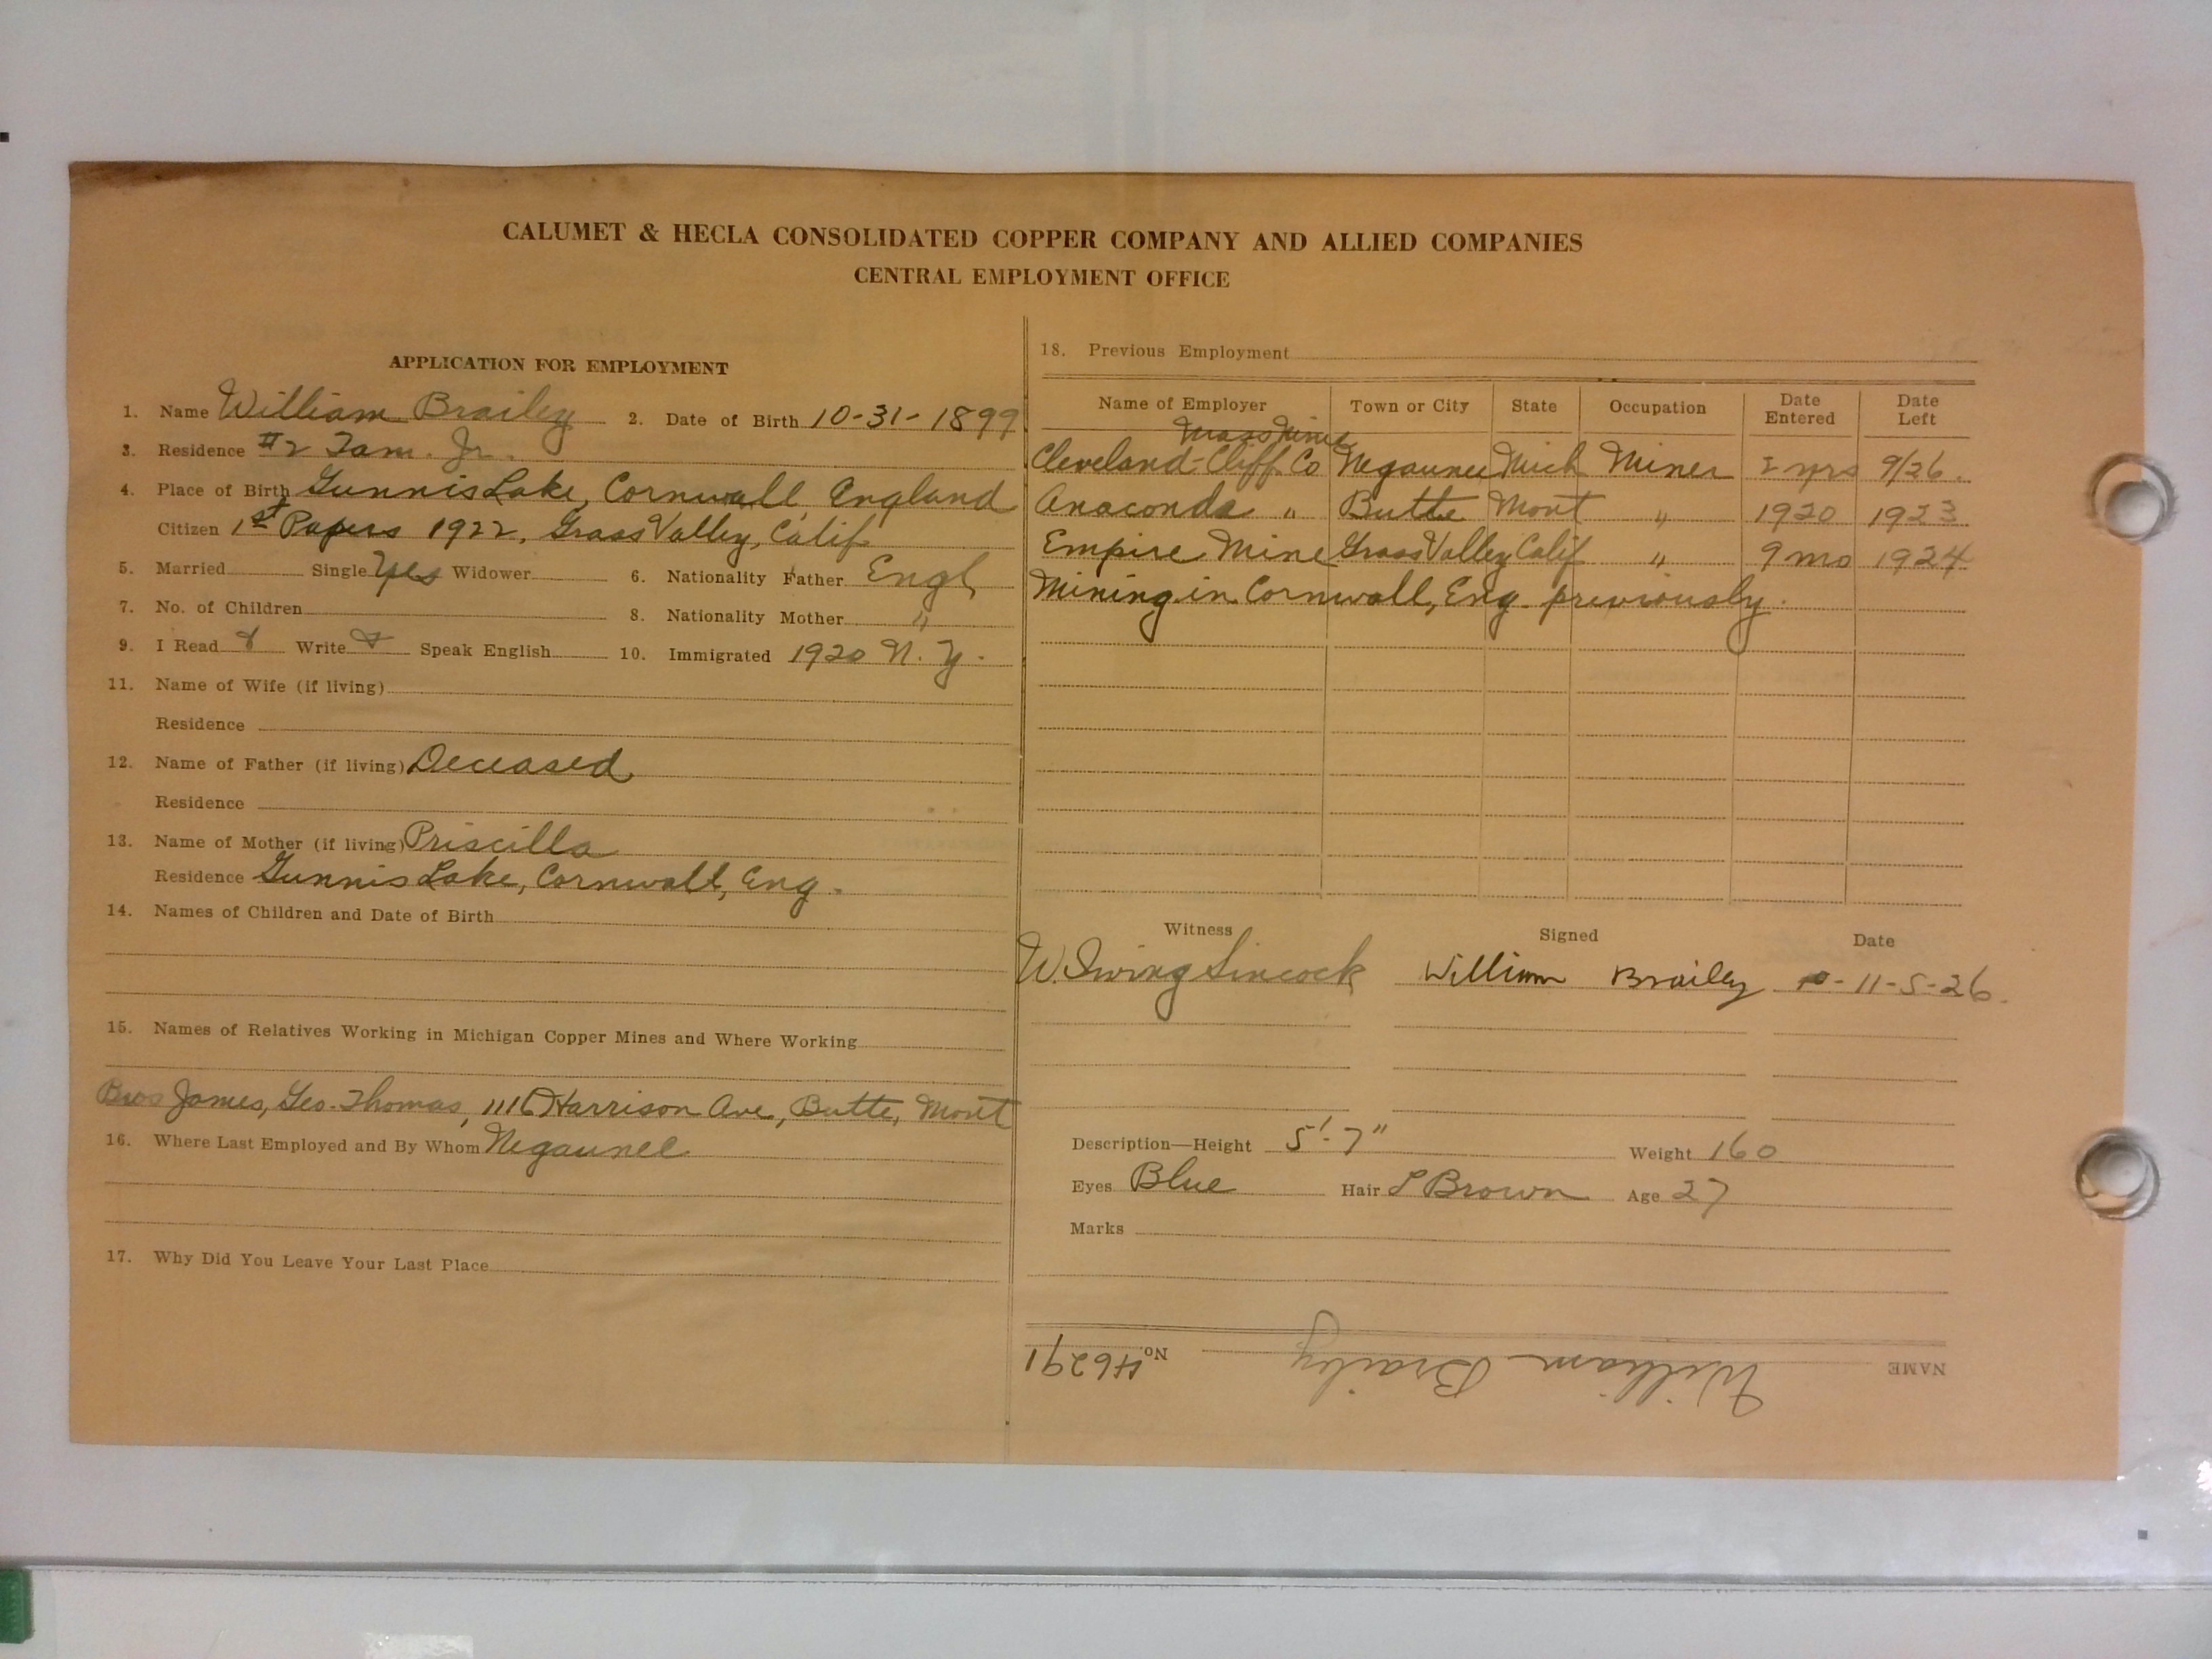 CALUMET & HECLA CONSOLIDATED COPPER COMPANY AND ALLIED COMPANIES
CENTRAL EMPLOYMENT OFFICE
APPLICATION FOR EMPLOYMENT
1. Name William Brailey 2. Date of Birth 10-31-1899
3. Residence #2 Tam. Jr.
4. Place of Birth Gunnis Lake, Cornwall, England
Citizen 1st Papers 1922, Grass Valley, Calif
5. Married Single Yes Widower 6. Nationality Father Engl
7. No. of Children 8. Nationality Mother "
9. I Read Write Speak English 10. Immigrated 1920 N. Y.
11. Name of Wife (if living)
Residence
12. Name of Father (if living) Deceased
Residence
13. Name of Mother (if living) Priscilla
Residence Gunnis Lake, Cornwall, Eng.
14. Names of Children and Date of Birth
15. Names of Relatives Working in Michigan Copper Mines and Where Working
Bros James, Geo. Thomas, Harrison Ave, Butte, Mont
16. Where Last Employed and By Whom Negaunee
17. Why Did You Leave Your Last Place
18. Previous Employment
Name of Employer Town or City State Occupation Date Entered Date Left
Mass Mine
Cleveland-Cliff Co Negaunee Mich Miner 2 yrs 9/26.
Anaconda " Butte Mont " 1920 1923
Empire Mine Grass Valley Calif " 9 mo 1924
Mining in Cornwall, Eng. previously.
Witness Signed Date
W. Irving Sincock William Brailey 11-5-26.
Description—Height 5'-7" Weight 160
Eyes Blue Hair L Brown Age 27
Marks
NAME William Braily No. 46291